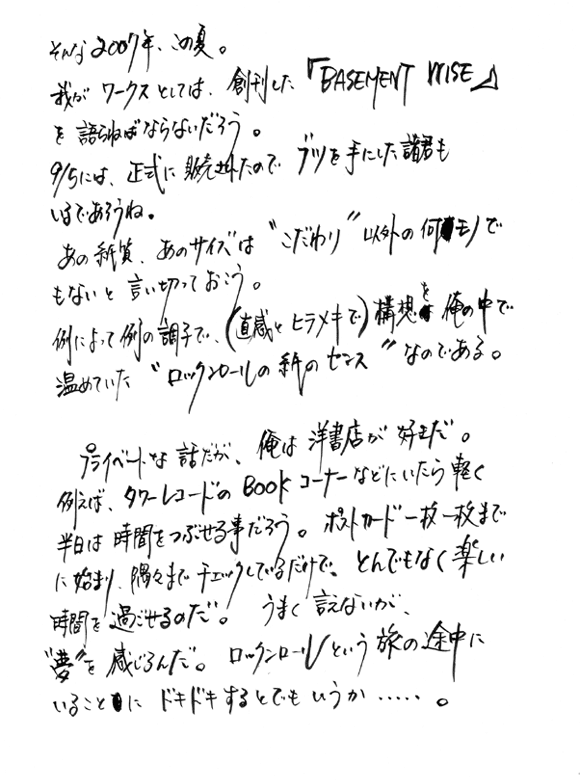 そんな2007年、この夏。
我が ワークスとしては、創刊した『BASEMENT WISE』
を語らねばならないだろう。
9/5には、正式に販売されたので ブツを手にした諸君も
いるであろうね。
あの紙質、あのサイズは “こだわり” 以外の何モノで
もないと言い切っておこう。
例によって例の調子で、(直感とヒラメキで)構想を俺の中で
温めていた “ロックンロールの紙のセンス” なのである。
プライベートな話だが、俺は洋書店が好きだ。
例えば、タワーレコードのBOOKコーナーなどにいたら軽く
半日は時間をつぶせる事だろう。ポストカード一枚一枚まで
に始まり、隅々までチェックしているだけで、とんでもなく楽しい
時間を過ごせるのだ。 うまく言えないが、
“夢”を感じるんだ。ロックンロールという旅の途中に
いることに ドキドキするとでもいうか……。